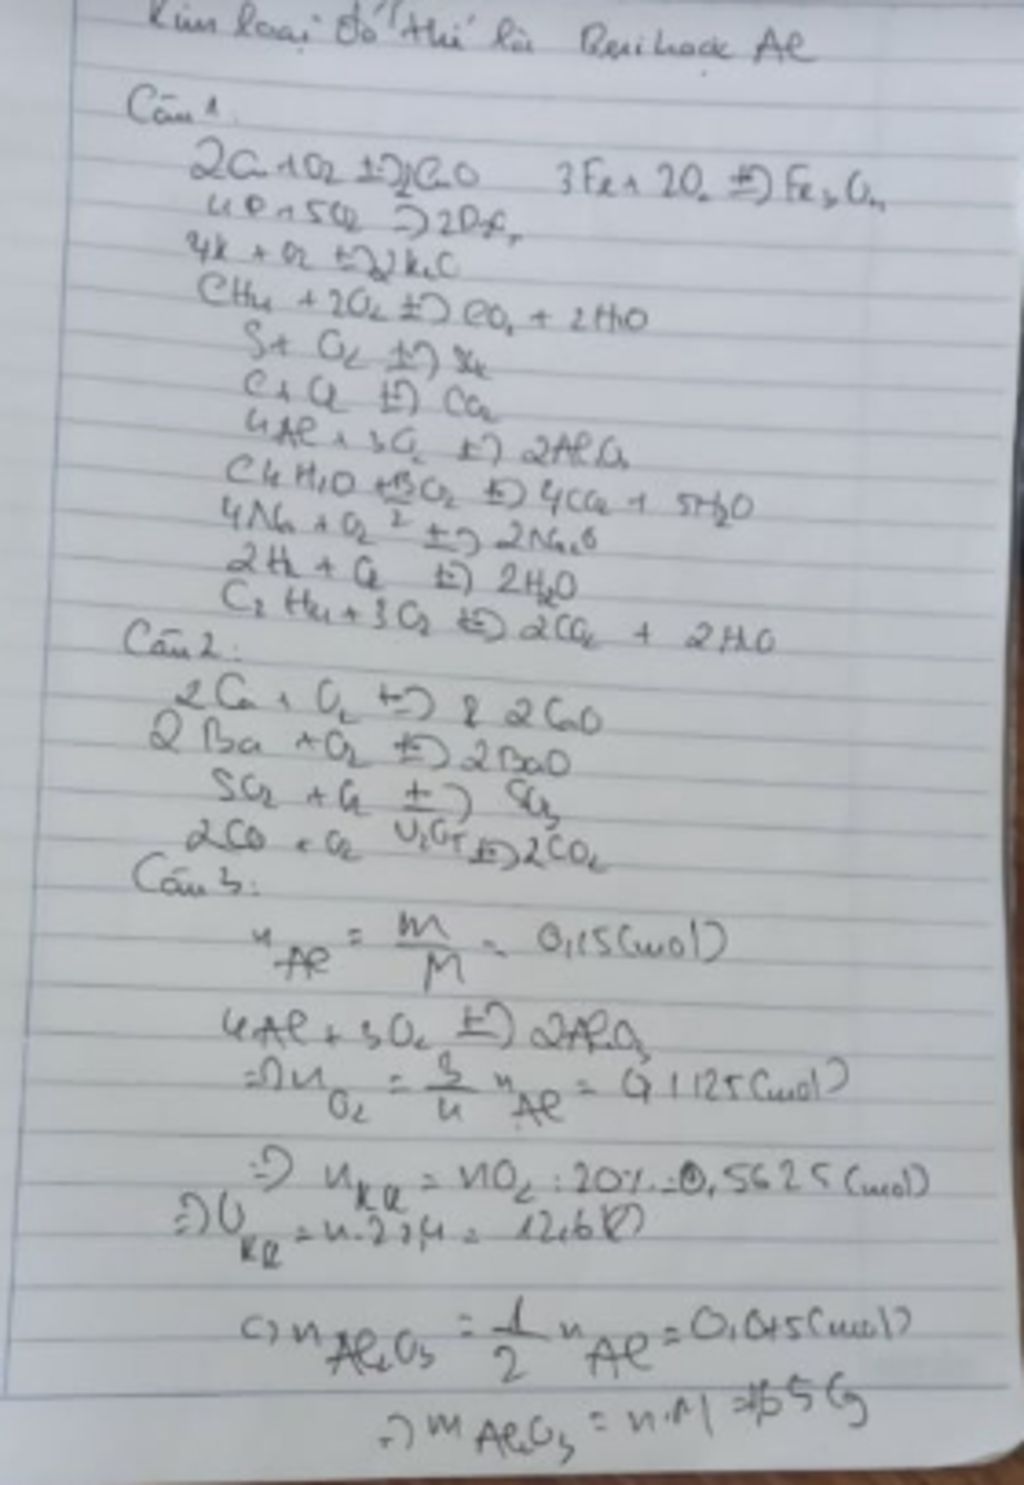 Kim loại đó thể là Be hoặc Al
Câu 1
2Ca + O2 t°→ 2CaO 3Fe + 2O2 t°→ Fe3O4
4P + 5O2 → 2P2O5
4K + O2 t°→ 2K2O
CH4 + 2O2 t°→ CO2 + 2H2O
S + O2 t°→ SO2
C + O2 t°→ CO2
4Al + 3O2 t°→ 2Al2O3
C4H10 + 13/2 O2 t°→ 4CO2 + 5H2O
4Na + O2 t°→ 2Na2O
2H2 + O2 t°→ 2H2O
C2H4 + 3O2 t°→ 2CO2 + 2H2O
Câu 2:
2Ca + O2 t°→ 2CaO
2Ba + O2 t°→ 2BaO
SO2 + O2 t°→ SO3
2CO + O2 V2O5 t°→ 2CO2
Câu 3:
nAl = m/M = 0,15(mol)
4Al + 3O2 t°→ 2Al2O3
=> nO2 = 3/4 nAl = 0,1125(mol)
=> nKK = nO2 : 20% = 0,5625(mol)
=> VKK = n.22,4 = 12,6(l)
c) nAl2O3 = 1/2 nAl = 0,075(mol)
=> mAl2O3 = n.M =